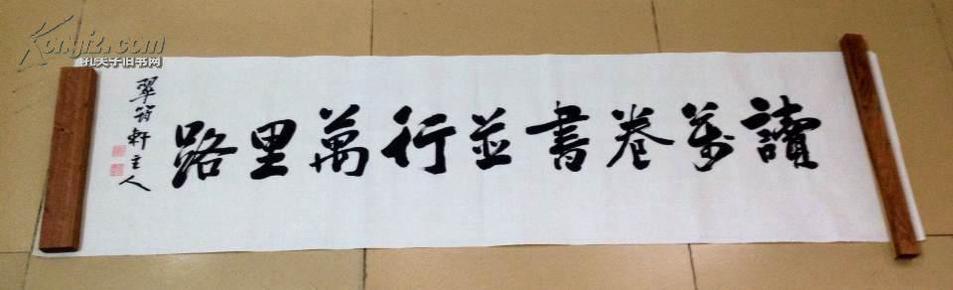 讀萬卷書並行萬里路
翠筠軒主人
Kongfz.com
孔夫子旧书网